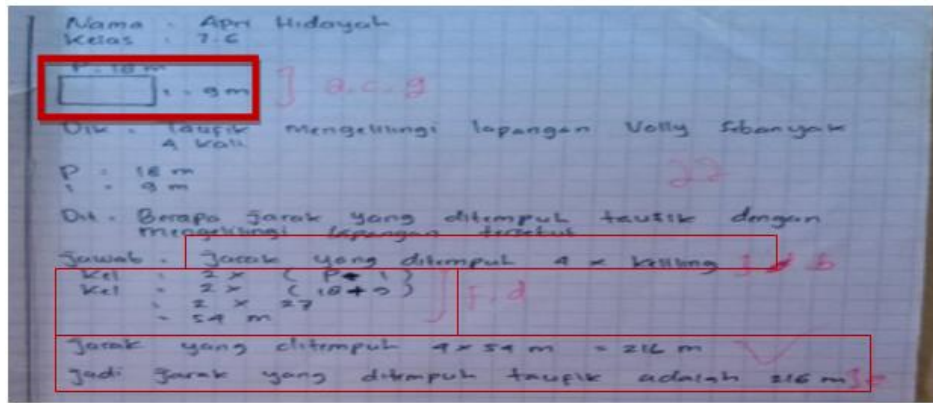 Nama : Apri Hidayah
Kelas : 7.C
P = 18 m
l = 9 m ] a.c.g
Dik : Taufik mengelilingi lapangan Volly sebanyak
4 kali
22
P = 18 m
l = 9 m
Dit : Berapa jarak yang ditempuh taufik dengan
mengelilingi lapangan tersebut
Jawab : Jarak yang ditempuh 4 x keliling ] b
Kel = 2 x ( P + l )
Kel = 2 x ( 18 + 9 ) ] f.d
= 2 x 27
= 54 m
Jarak yang ditempuh 4 x 54 m = 216 m
Jadi jarak yang ditempuh taufik adalah 216 m ] e